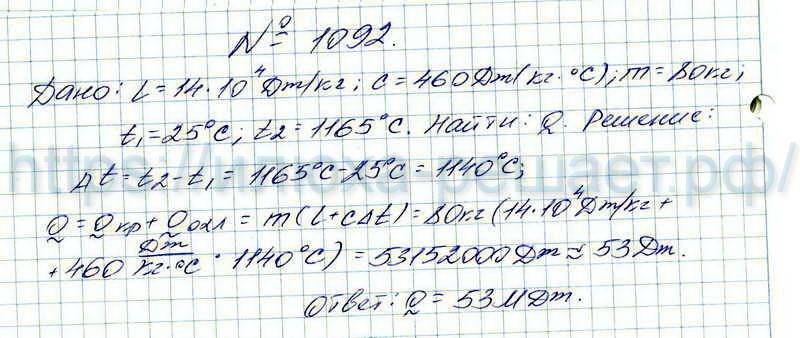 № 1092.
Дано: L = 14·10⁴ Дж/кг; c = 460 Дж/(кг·°C); m = 80 кг;
t₁ = 25°C; t₂ = 1165°C. Найти: Q. Решение:
Δt = t₂ - t₁ = 1165°C - 25°C = 1140°C;
Q = Qкр + Qохл = m(L + cΔt) = 80 кг (14·10⁴ Дж/кг +
+ 460 Дж/кг·°C · 1140°C) = 53152000 Дж ≈ 53 Дж.
Ответ: Q = 53 МДж.